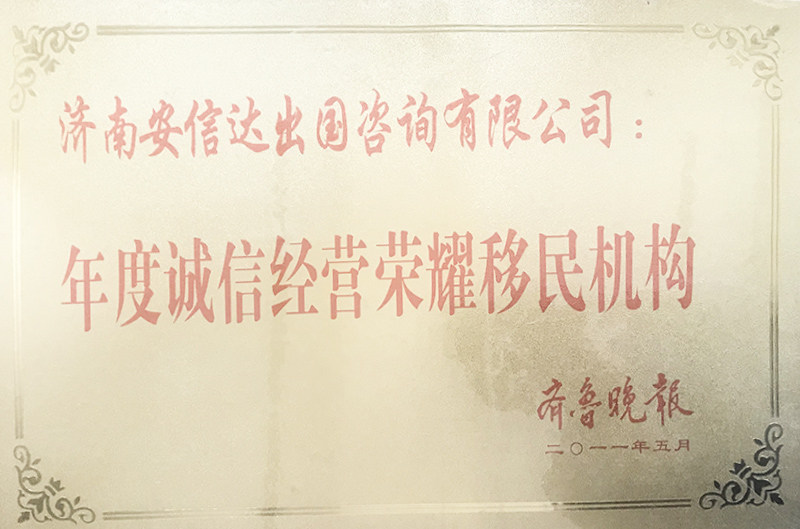 济南安信达出国咨询有限公司：
年度诚信经营荣耀移民机构
齐鲁晚报
二〇一一年五月